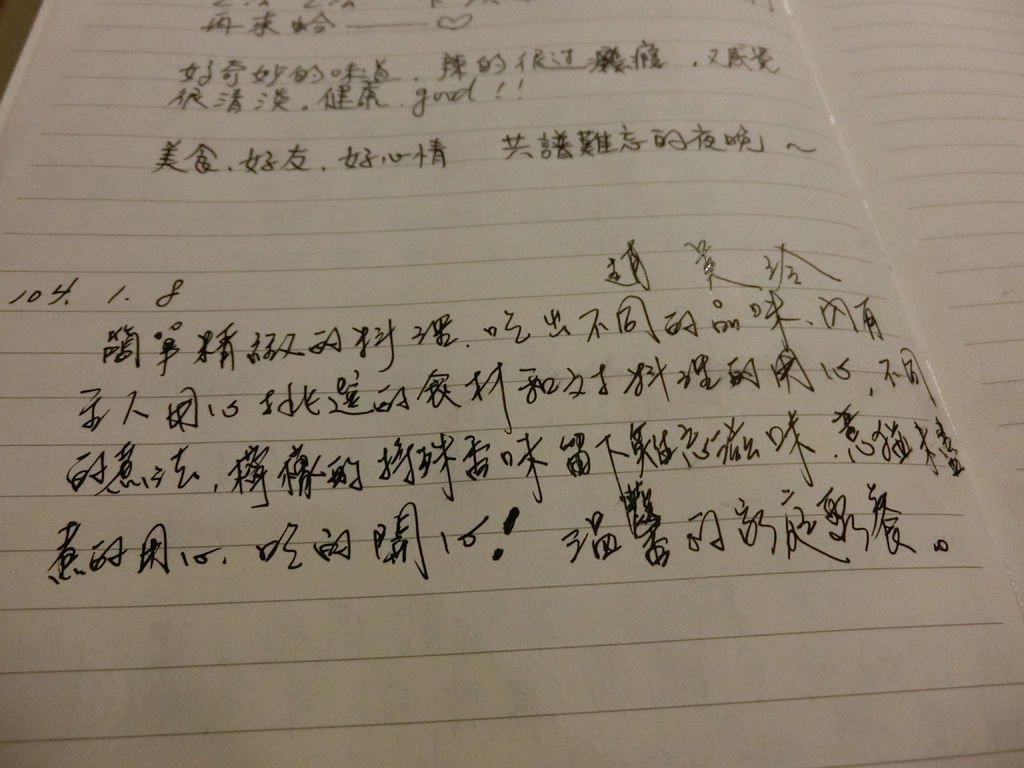 再來哈——♡
好奇妙的味道，辣的很过癮，又感覺
很清淡，健康，good！！
美食、好友、好心情 共譜難忘的夜晚～
104. 1. 8
簡單精緻的料理，吃出不同的品味、內有
主人用心挑選的食材和对料理的用心，不同
的煮法，檸檬的特殊香味留下難忘滋味，
煮的用心，吃的開心！溫馨的家庭聚餐。